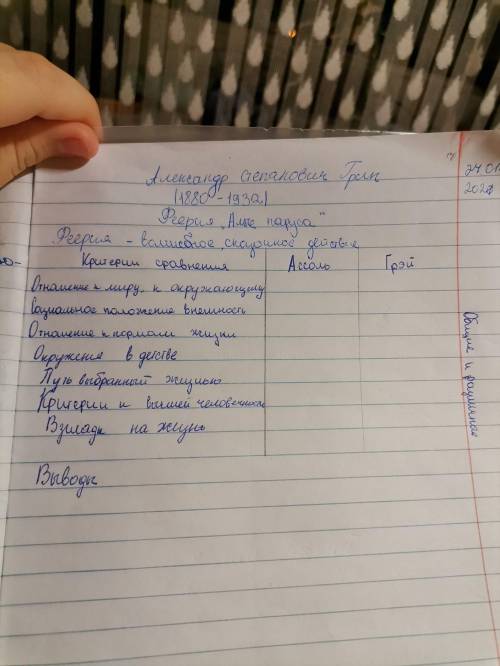 24.01
202
Александр Степанович Грин
(1880-1932)
Феерия "Алые паруса"
Феерия - волшебное сказочное действие
Критерии сравнения Ассоль Грэй
Отношение к миру, к окружающему
Социальное положение внешность
Отношение к нормам жизни
Окружение в детстве
Путь выбранный жизнью
Критерии к высшей человечности
Взгляды на жизнь
Выводы
Общие и различное